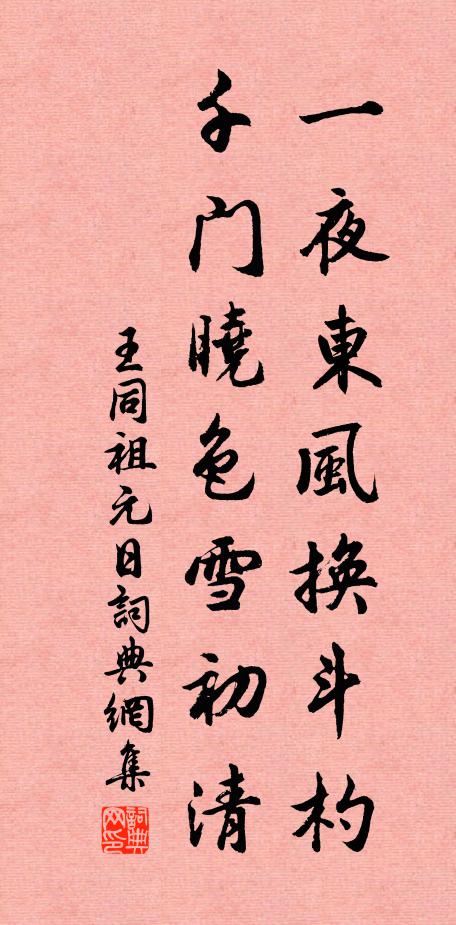 一夜東風換斗杓
千門曉色雪初清
王同祖元日詞典網集
詞典网印